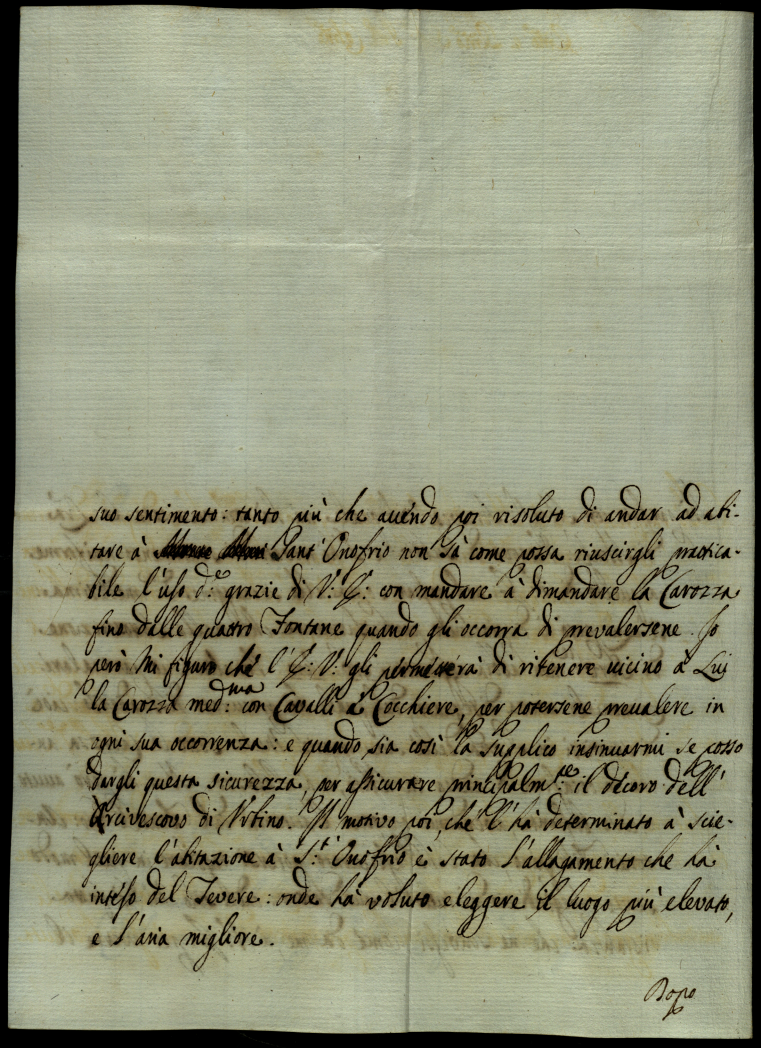 suo sentimento: tanto più che auendo poi risoluto di andar ad abi-
tare à Sant' Onofrio non sà come possa riuscirgli prattica-
bile l'uso d.e grazie di V: E: con mandare à dimandare la Carozza
fino dalle quattro Fontane quando gli occorra di prevalersene. Io
però mi figuro che l'E: V: gli permeterà di ritenere vicino à Lui
la Carozza med:ma con Cavalli e Cocchiere, per potersene prevalere in
ogni sua occorrenza: e quando sia così la supplico insinuarmi se posso
dargli questa sicurezza, per assicurare principalm:te il decoro dell'
Arcivescovo di Urbino. Il motivo poi, che l'hà determinato à scie-
gliere l'abitazione à S:t Onofrio è stato l'allagamento che hà
inteso del Tevere: onde hà voluto eleggere il luogo più elevato,
e l'aria migliore.